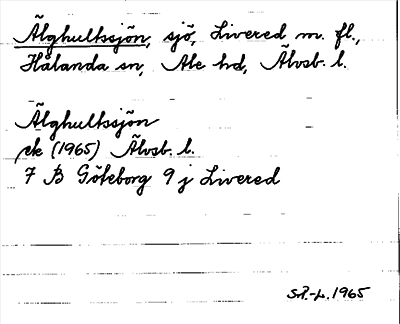 Älghultssjön, sjö, Livered m. fl.,
Hålanda sn, Ale hd, Älvsb. l.
Älghultssjön
ek (1965) Älvsb. l.
7 B Göteborg 9 j Livered
S.P.-L. 1965